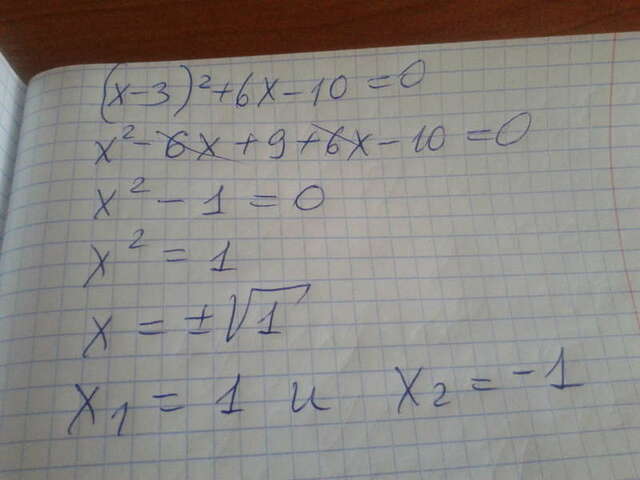 (x-3)²+6x-10=0
x²-6x+9+6x-10=0
x²-1=0
x²=1
x=±√1
x₁=1 и x₂=-1